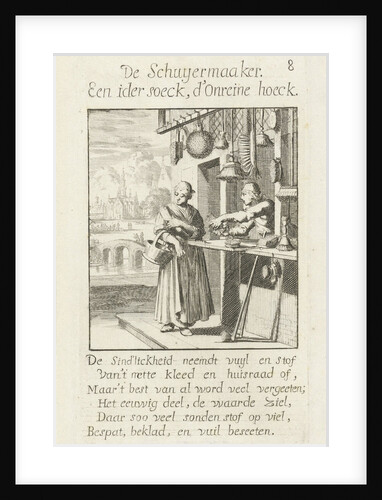 De Schuyermaaker. 8
Een ider soeck, d'Onreine hoeck.
De Sind'lickheid neemdt vuyl en stof
Van't nette kleed en huisraad of,
Maar't best van al word veel vergeeten;
Het eeuwig deel, de waarde Ziel,
Daar soo veel sonden stof op viel,
Bespat, beklad, en vuil beseeten.